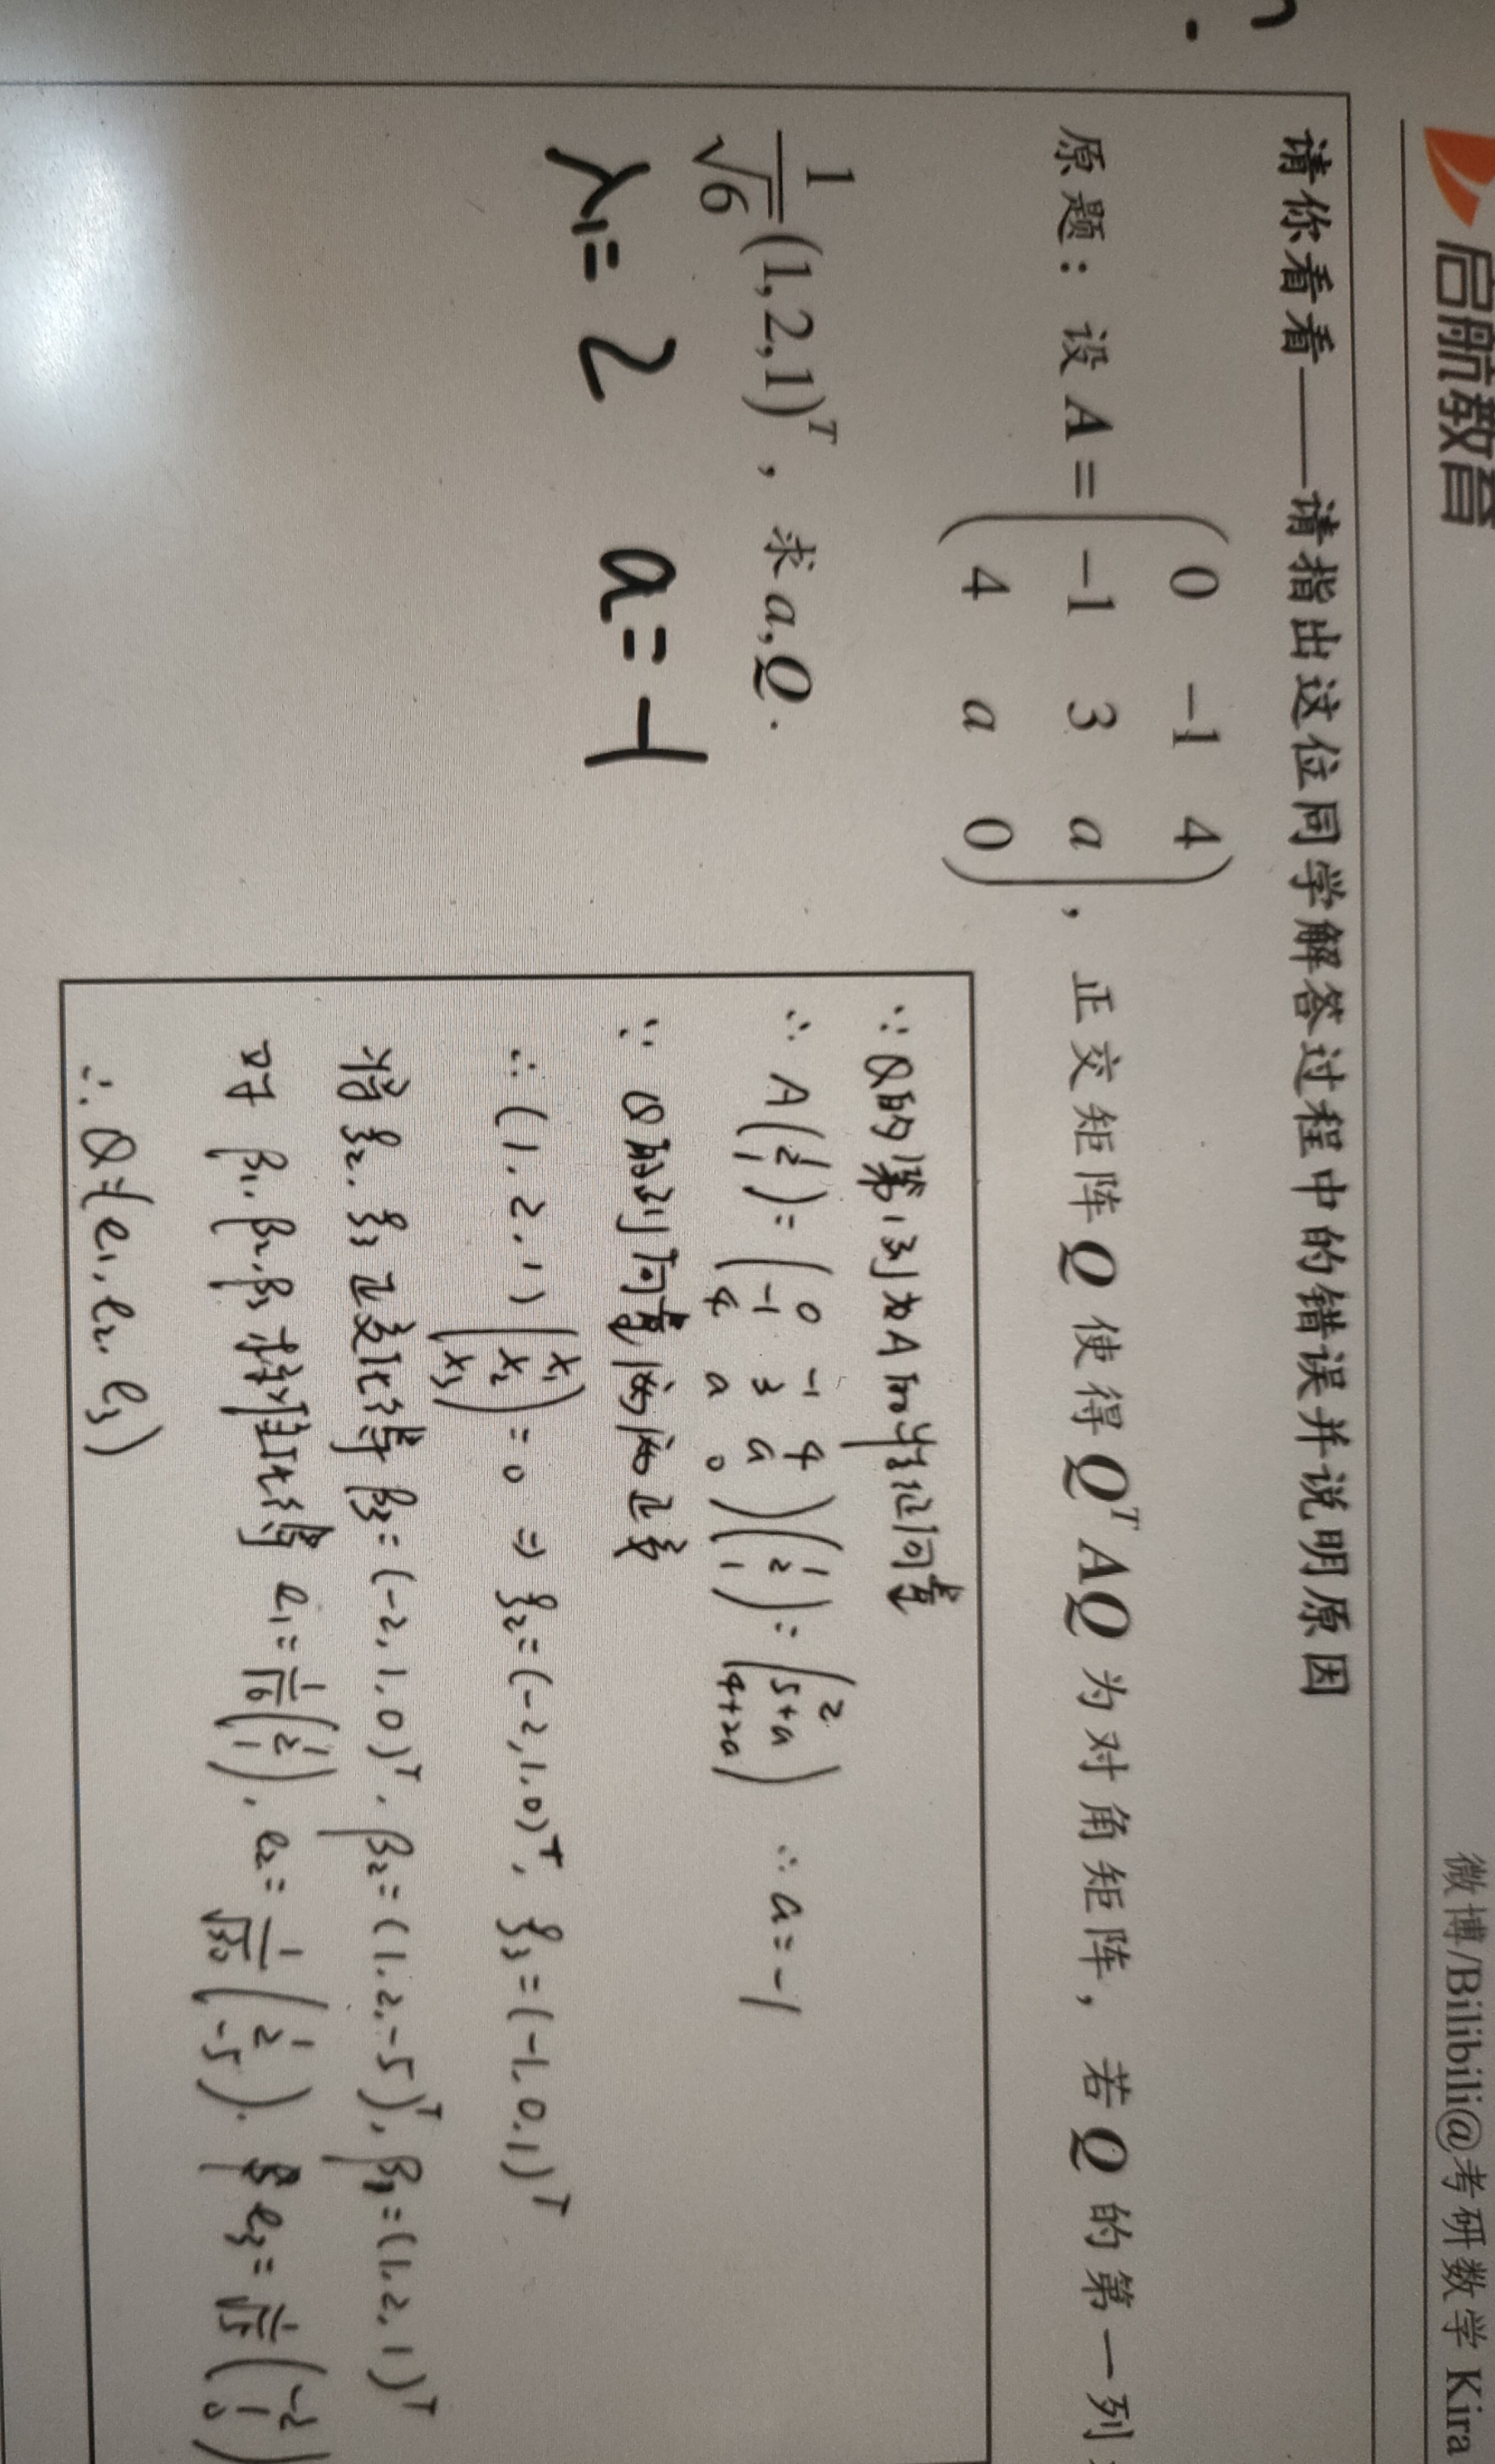 启航教育
微博/Bilibili@考研数学 Kira
请你看看——请指出这位同学解答过程中的错误并说明原因
原题：设 A = ( 0 -1 4 ; -1 3 a ; 4 a 0 )，正交矩阵 Q 使得 Q^T AQ 为对角矩阵，若 Q 的第一列
1/√6 (1,2,1)^T，求 a,Q.
λ1=2 a=-1
∵ Q的第1列为A的特征向量
∴ A(1 2 1) = ( 0 -1 4 ; -1 3 a ; 4 a 0 )(1 2 1) = (2 5+a 4+2a) ∴ a=-1
∵ Q的列向量两两正交
∴ (1, 2, 1)(x1 x2 x3) = 0 ⇒ ξ2=(-2,1,0)^T, ξ3=(-1,0,1)^T
将 ξ2, ξ3 正交化得 β3=(-2,1,0)^T, β2=(1,2,-5)^T, β1=(1,2,1)^T
对 β1, β2, β3 单位化得 e1=1/√6(1 2 1), e2=1/√30(1 2 -5), e3=1/√5(-2 1 0)
∴ Q=(e1, e2, e3)